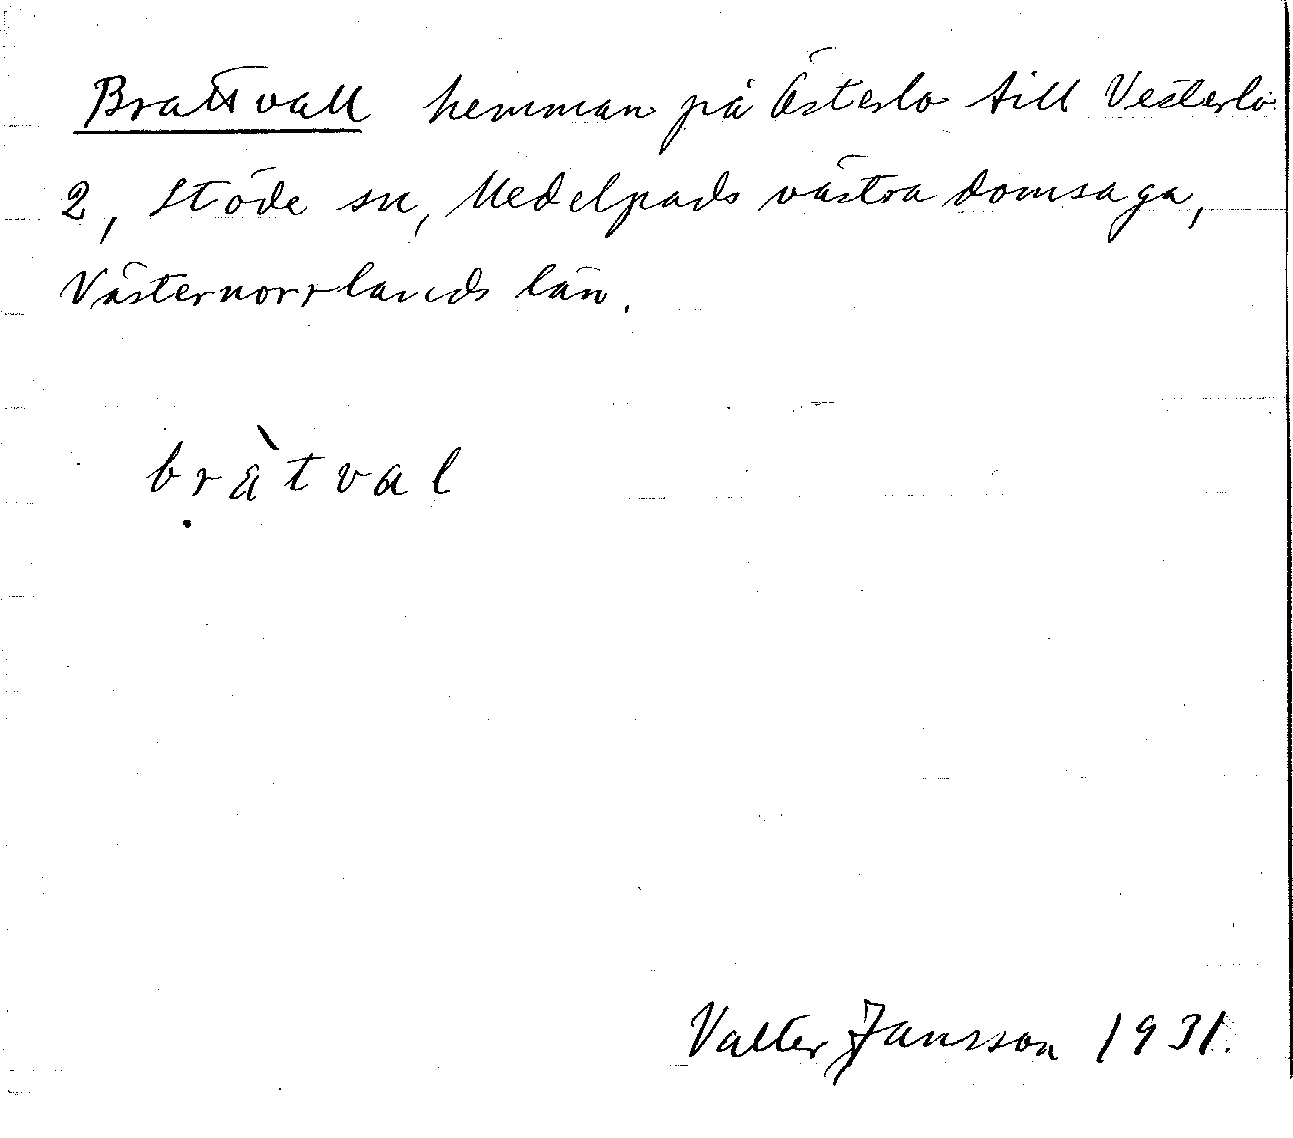 Brattvall hemman på Österlo till Vesterlo
2, Stöde sn, Medelpads västra domsaga,
Västernorrlands län.
bràtval
Valter Jansson 1931.